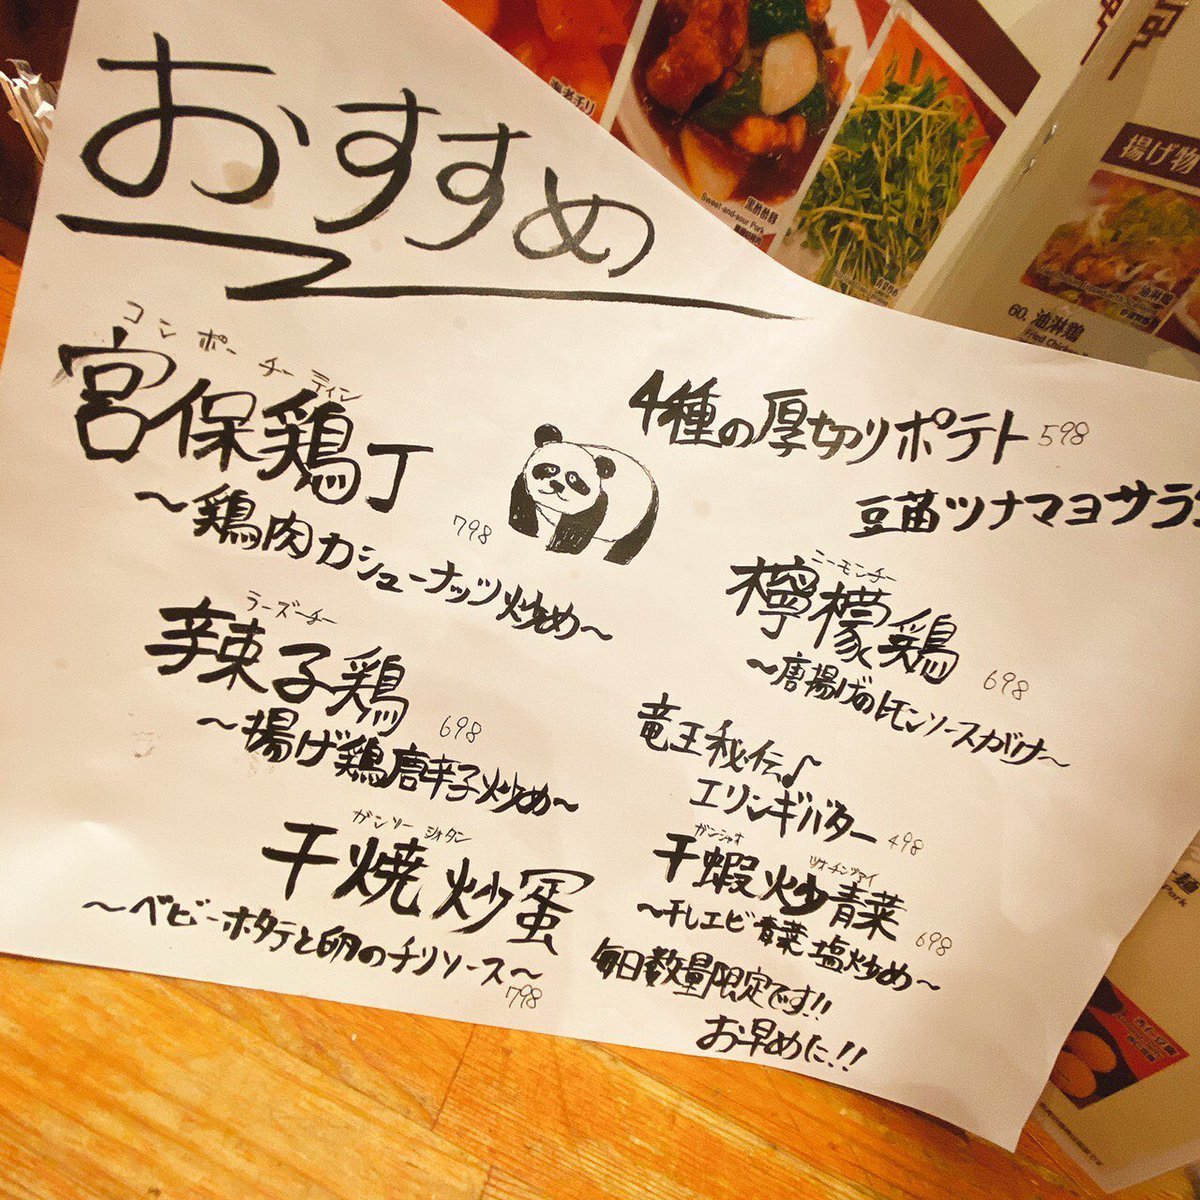 おすすめ
コンポーチーティン
宮保鶏丁
798
～鶏肉カシューナッツ炒め～
ラーズーチー
辣子鶏
698
～揚げ鶏唐辛子炒め～
ガンソーシオタン
干焼炒蛋
～ベビーホタテと卵のチリソース～
798
4種の厚切りポテト 598
豆苗ツナマヨサラ
ニーモンチー
檸檬鶏
698
～唐揚げのレモンソースがけ～
竜王秘伝♪
エリンギバター 498
ガンシャオ ツオーチンツァイ
干蝦炒青菜
698
～干しエビ青菜塩炒め～
毎日数量限定です!!
お早めに!!
海老チリ
黒酢酢豚
Sweet-and-sour Pork
揚げ物
油淋鶏
60. 油淋鶏
Fried Chicken